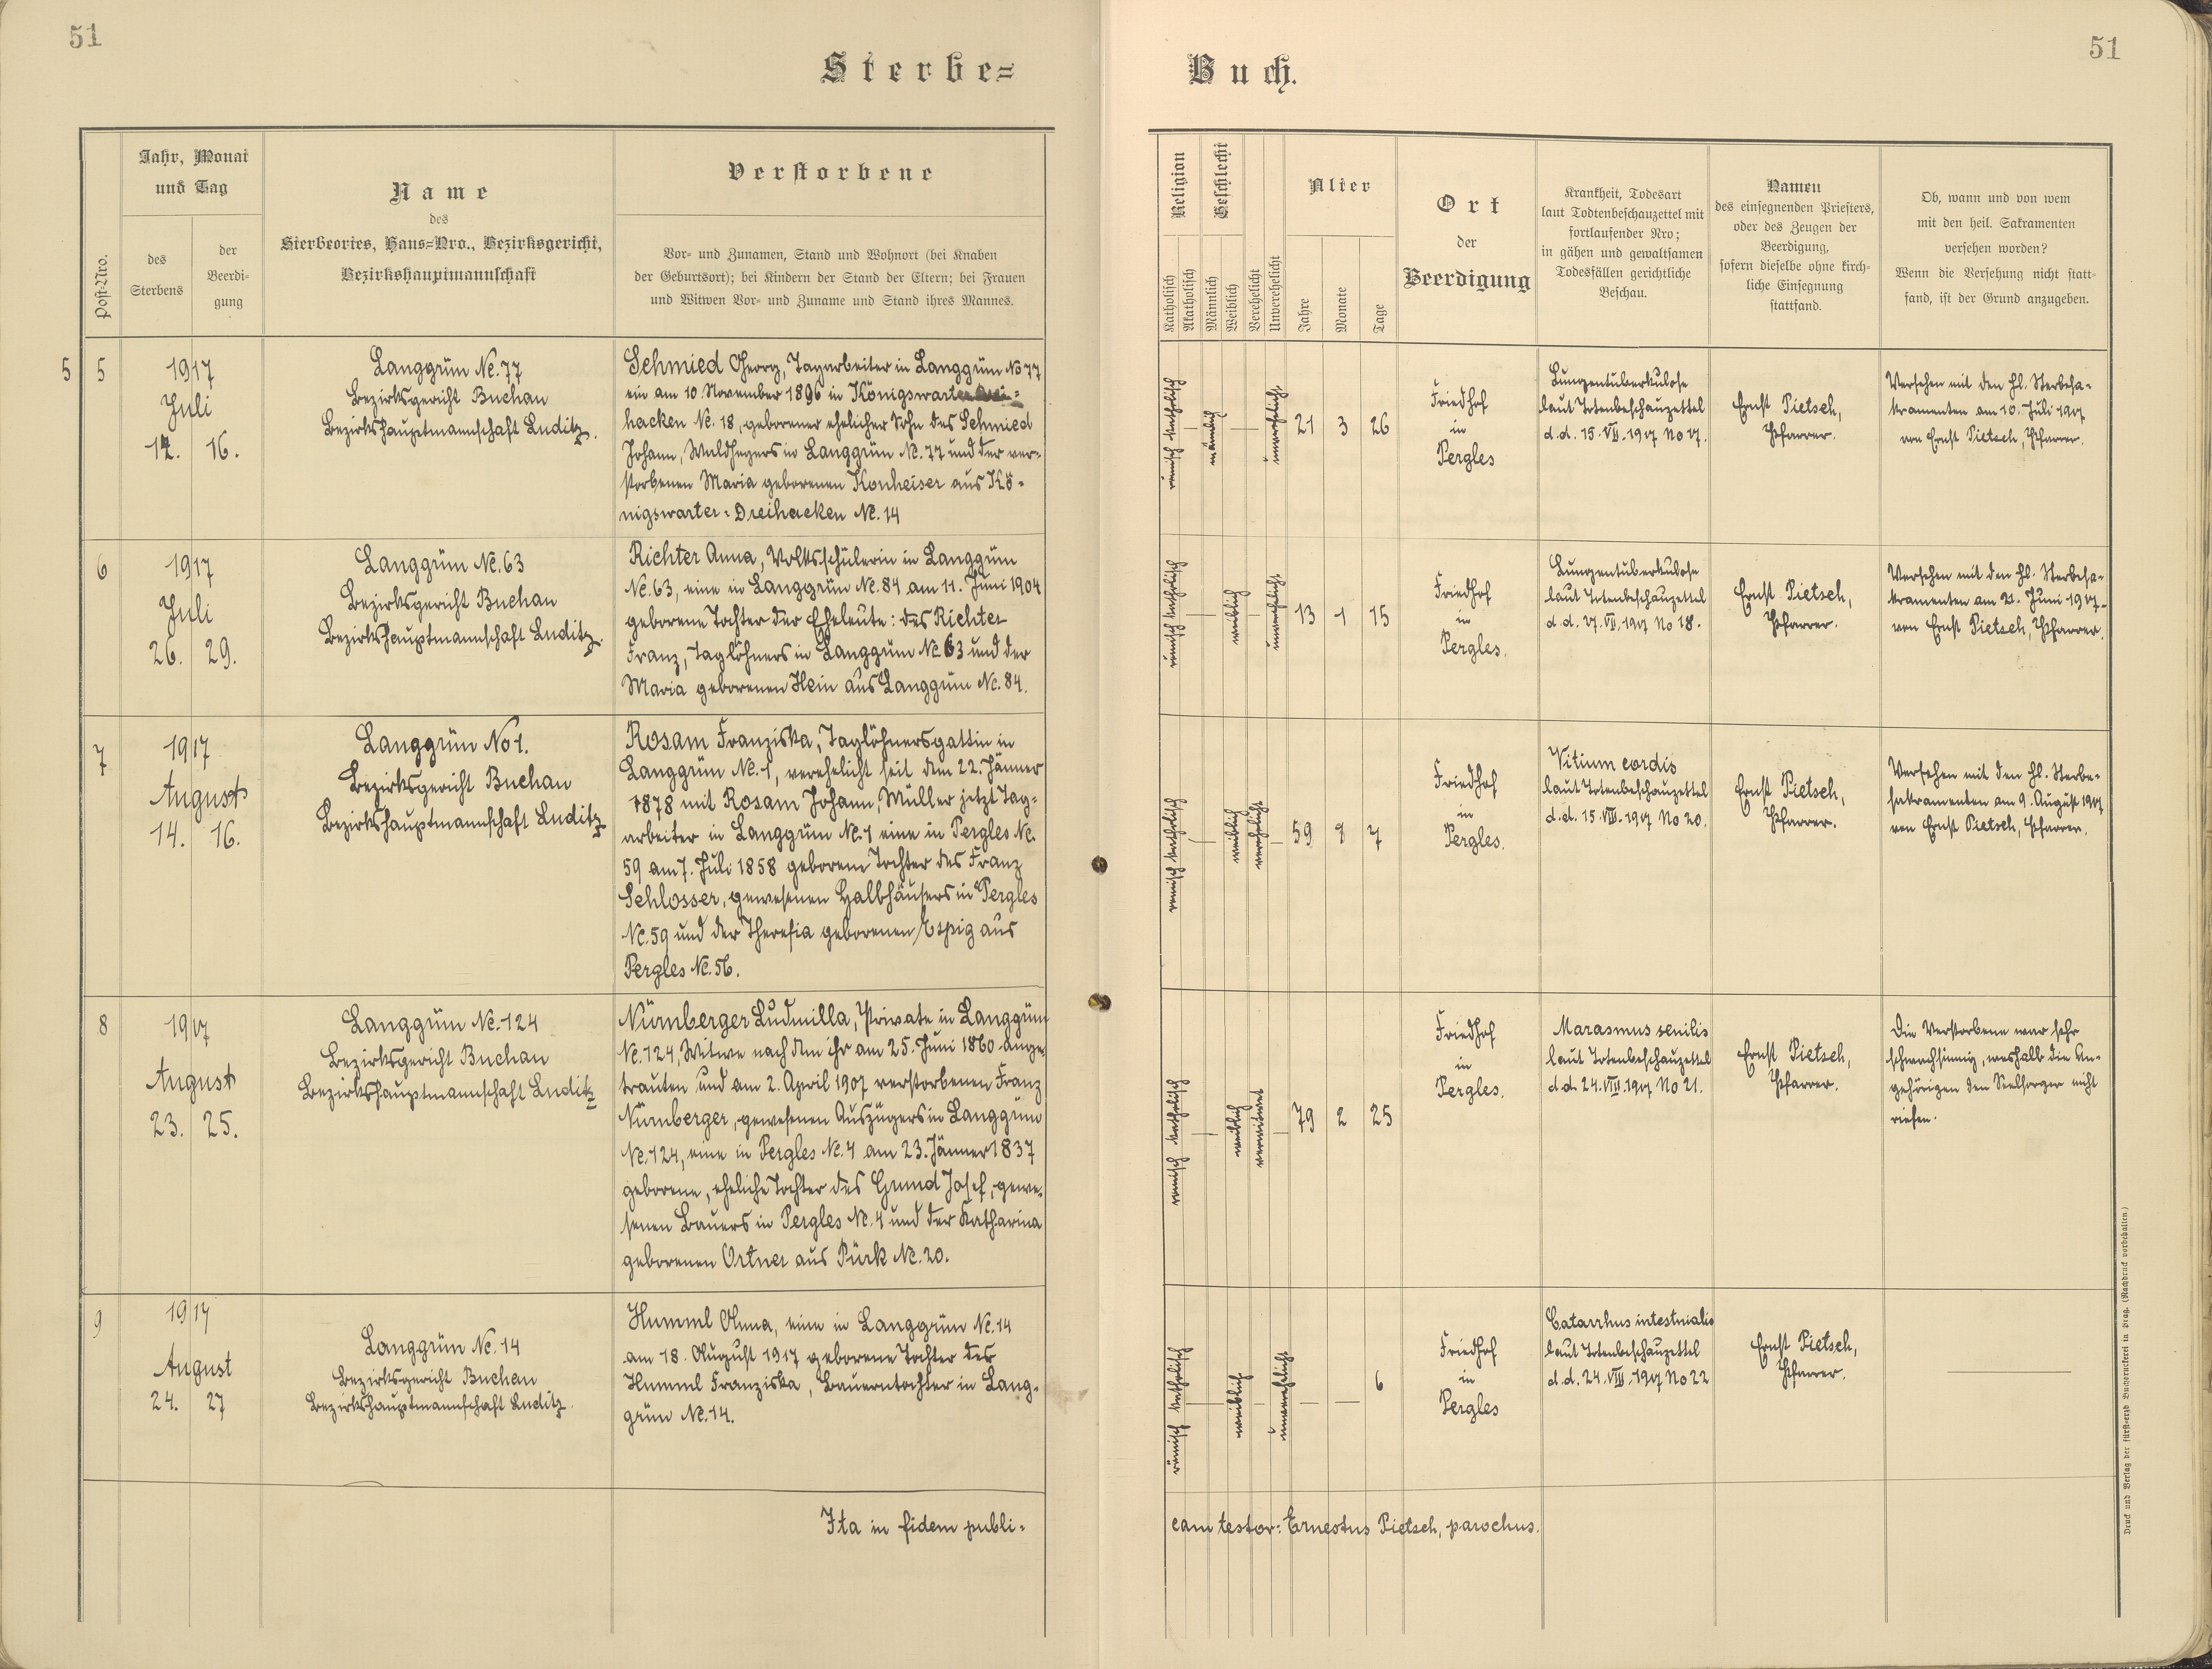 51
51
Sterbe=
Buch.
Post-Nro.
Jahr, Monat
und Tag
des
Sterbens
der
Beerdi-
gung
Name
des
Sterbeortes, Haus=Nro., Bezirksgericht,
Bezirkshauptmannschaft
Verstorbene
Vor- und Zunamen, Stand und Wohnort (bei Knaben
der Geburtsort); bei Kindern der Stand der Eltern; bei Frauen
und Witwen Vor- und Zuname und Stand ihres Mannes.
Religion
Katholisch
Akatholisch
Geschlecht
Männlich
Weiblich
Verehelicht
Unverehelicht
Alter
Jahre
Monate
Tage
Ort
der
Beerdigung
Krankheit, Todesart
laut Todtenbeschauzettel mit
fortlaufender Nro;
in gähen und gewaltsamen
Todesfällen gerichtliche
Beschau.
Namen
des einsegnenden Priesters,
oder des Zeugen der
Beerdigung,
sofern dieselbe ohne kirch-
liche Einsegnung
stattfand.
Ob, wann und von wem
mit den heil. Sakramenten
versehen worden?
Wenn die Versehung nicht statt-
fand, ist der Grund anzugeben.
5
5
1917
Juli
14. 16.
Langgrün Nc. 77
Bezirksgericht Buchau
Bezirkshauptmannschaft Luditz.
Schmied Georg, Tagarbeiter in Langgrün No 77
ein am 10. November 1896 in Königswarter
hacken Nc. 18, geborener ehelicher Sohn des Schmied
Johann, Waldhegers in Langgrün Nc. 77 und der ver-
storbenen Maria geborenen Konheiser aus Kö-
nigswarter-Dreihacken Nc. 14
römisch katholisch
männlich
unverehelicht
21 3 26
Friedhof
in
Pergles
Lungentuberkulose
laut Totenbeschauzettel
d.d. 15. VII. 1917 No 17.
Ernst Pietsch,
Pfarrer.
Versehen mit den hl. Sterbesa-
kramenten am 10. Juli 1917
von Ernst Pietsch, Pfarrer.
6
1917
Juli
26. 29.
Langgrün Nc. 63
Bezirksgericht Buchau
Bezirkshauptmannschaft Luditz.
Richter Anna, Volksschülerin in Langgrün
Nc. 63, eine in Langgrün Nc. 84 am 11. Juni 1904
geborene Tochter der Eheleute: des Richter
Franz, Taglöhners in Langgrün Nc. 63 und der
Maria geborenen Hein aus Langgrün Nc. 84.
römisch katholisch
weiblich
unverehelicht
13 1 15
Friedhof
in
Pergles.
Lungentuberkulose
laut Totenbeschauzettel
d.d. 27. VII. 1917 No 18.
Ernst Pietsch,
Pfarrer.
Versehen mit den hl. Sterbesa-
kramenten am 21. Juni 1917
von Ernst Pietsch, Pfarrer.
7
1917
August
14. 16.
Langgrün No 1.
Bezirksgericht Buchau
Bezirkshauptmannschaft Luditz
Rosam Franziska, Taglöhnersgattin in
Langgrün Nc. 1, verehelicht seit dem 22. Jänner
1878 mit Rosam Johann, Müller jetzt Tag-
arbeiter in Langgrün Nc. 1 eine in Pergles Nc.
59 am 7. Juli 1858 geborene Tochter des Franz
Schlosser, gewesenen Halbhäusers in Pergles
Nc. 59 und der Theresia geborenen Espig aus
Pergles Nc. 56.
römisch katholisch
weiblich
verehelicht
59 8 7
Friedhof
in
Pergles.
Vitium cordis
laut Totenbeschauzettel
d.d. 15. VIII. 1917 No 20.
Ernst Pietsch,
Pfarrer.
Versehen mit den hl. Sterbe-
sakramenten am 9. August 1917
von Ernst Pietsch, Pfarrer.
8
1917
August
23. 25.
Langgrün Nc. 124
Bezirksgericht Buchau
Bezirkshauptmannschaft Luditz
Nürnberger Ludmilla, Private in Langgrün
Nc. 124, Witwe nach dem ihr am 25. Juni 1860 ange-
trauten und am 2. April 1907 verstorbenen Franz
Nürnberger, gewesenen Auszügers in Langgrün
Nc. 124, eine in Pergles Nc. 4 am 23. Jänner 1837
geborene, eheliche Tochter des Grund Josef, gewe-
senen Bauers in Pergles Nc. 4 und der Katharina
geborenen Ortner aus Pürk Nc. 20.
römisch katholisch
weiblich
verwitwet
79 2 25
Friedhof
in
Pergles.
Marasmus senilis
laut Totenbeschauzettel
d.d. 24. VIII. 1917 No 21.
Ernst Pietsch,
Pfarrer.
Die Verstorbene war sehr
schwachsinnig, weshalb die An-
gehörigen den Seelsorger nicht
riefen.
9
1917
August
24. 27
Langgrün Nc. 14
Bezirksgericht Buchau
Bezirkshauptmannschaft Luditz
Humml Anna, eine in Langgrün Nc. 14
am 18. August 1917 geborene Tochter des
Humml Franziska, Bauerntochter in Lang-
grün Nc. 14.
römisch katholisch
weiblich
unverehelicht
— — 6
Friedhof
in
Pergles
Catarrhus intestnialis
laut Totenbeschauzettel
d.d. 24. VIII. 1917 No 22
Ernst Pietsch,
Pfarrer.
Ita in fidem publi-
cam testor: Ernestus Pietsch, parochus.
Druck und Verlag der fürst-erzb. Buchdruckerei in Prag. (Nachdruck vorbehalten.)